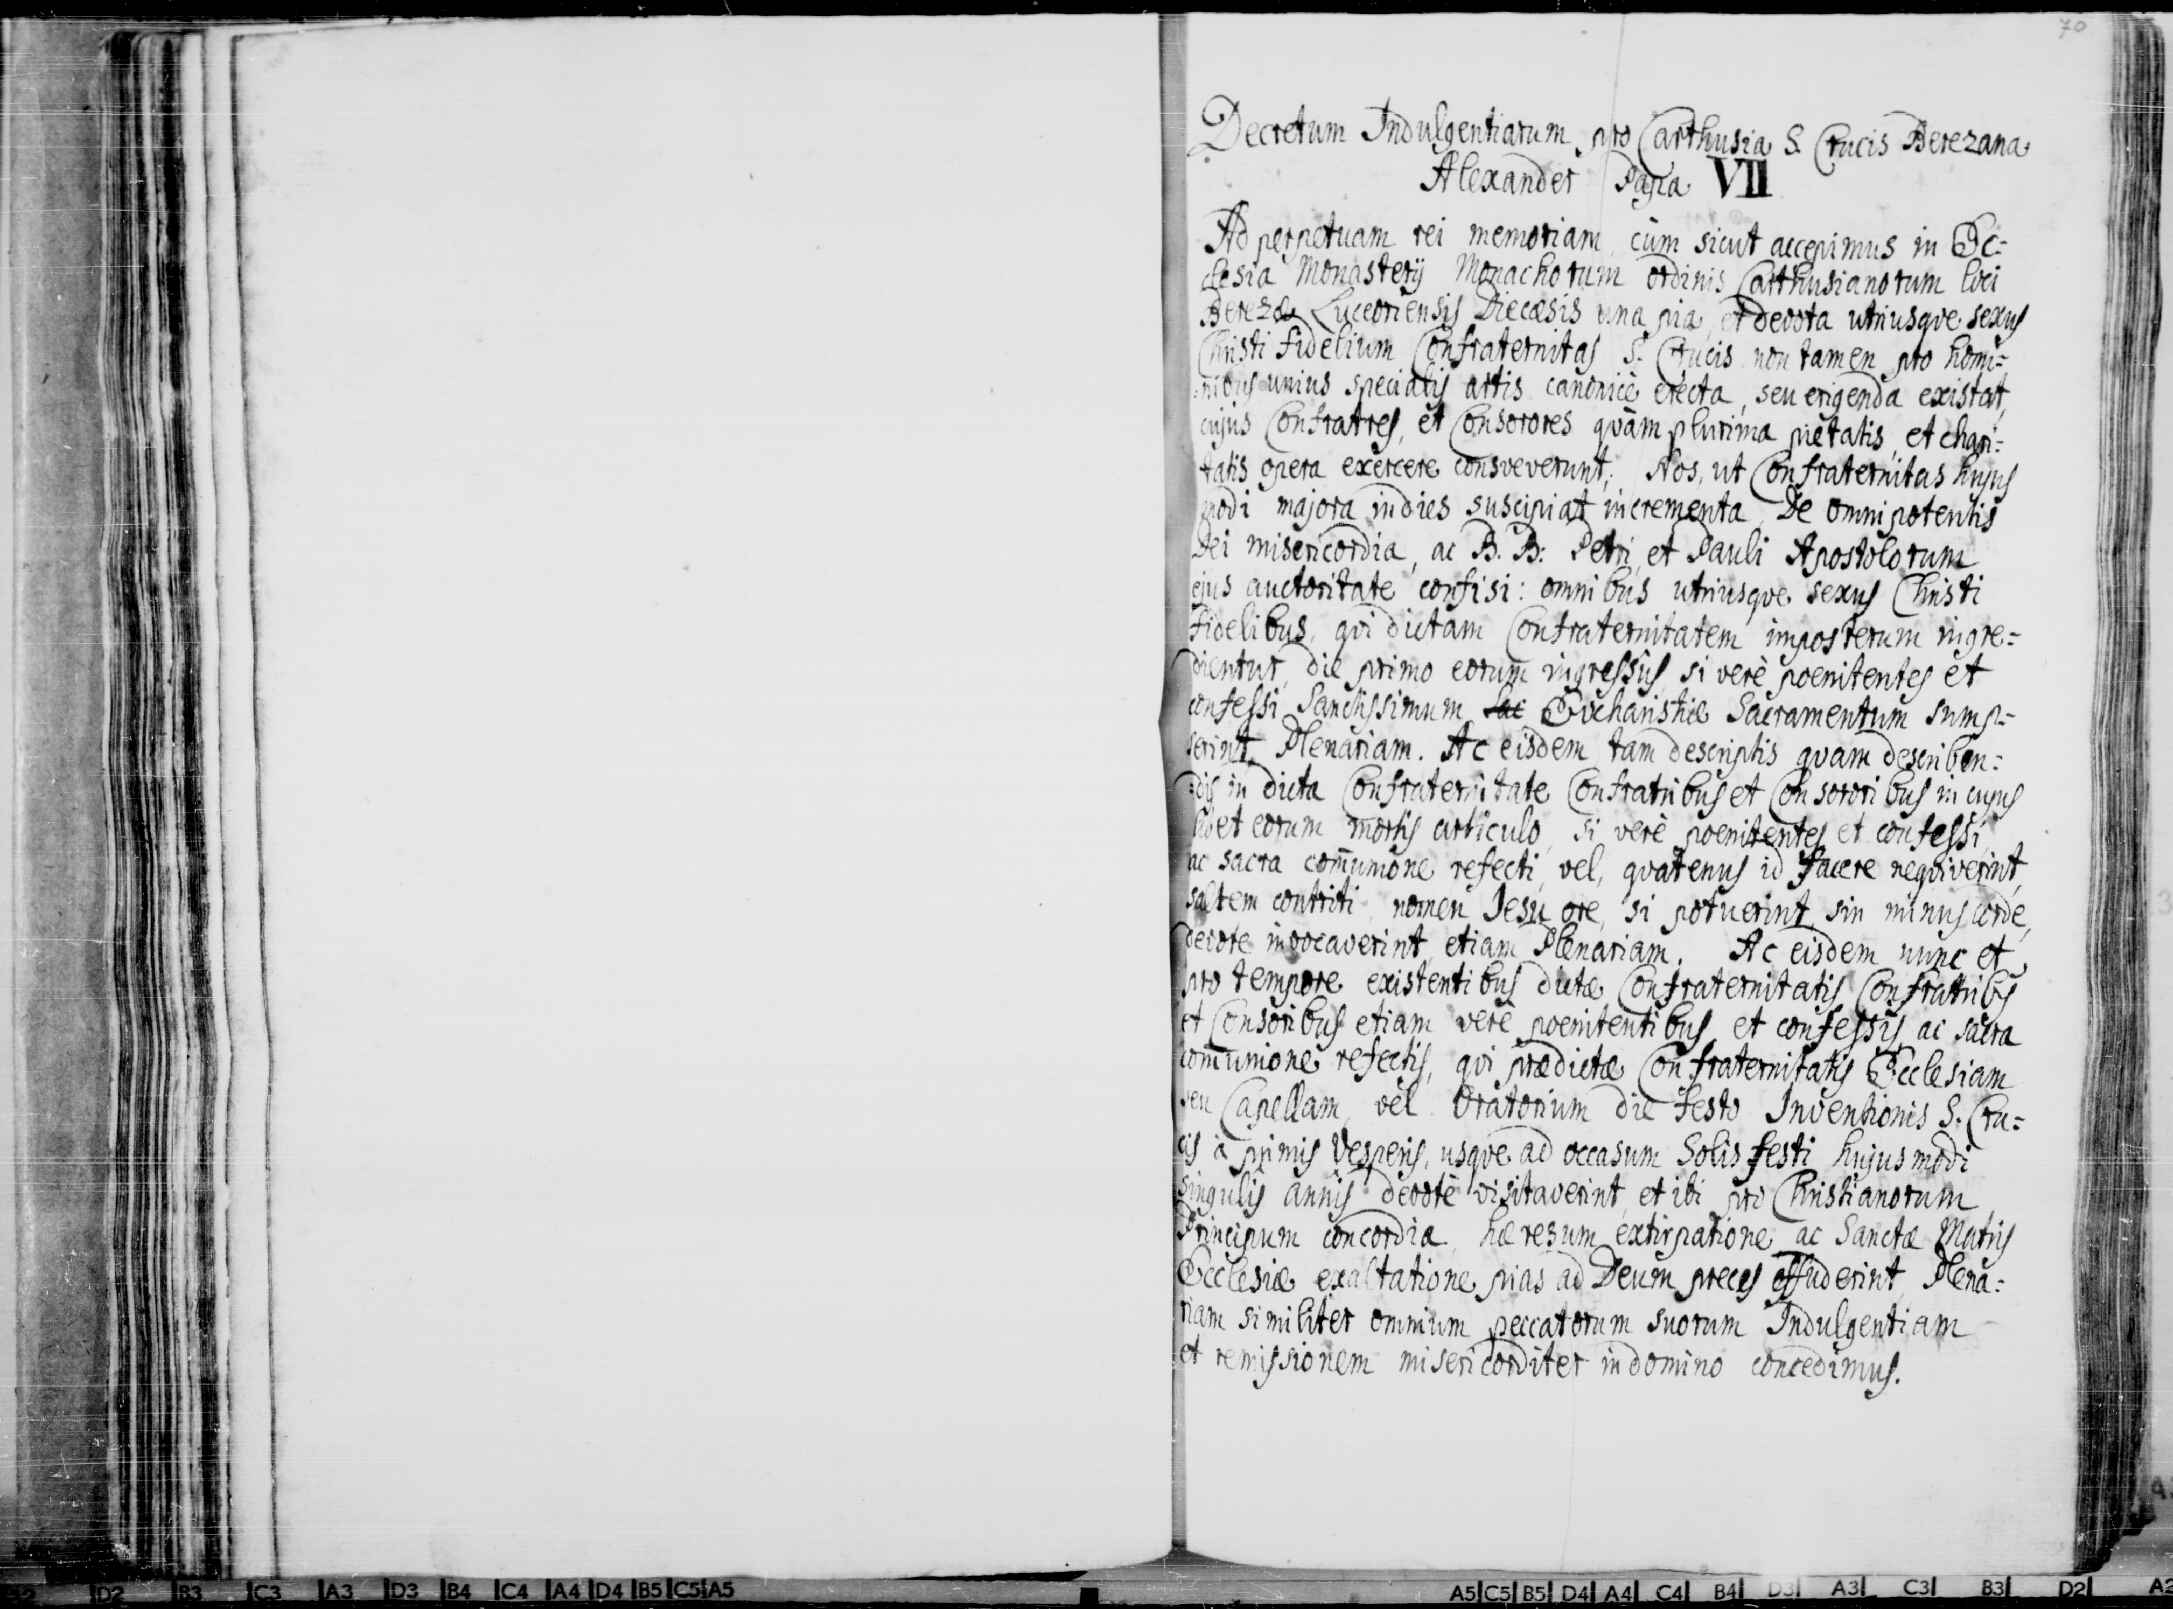 70
Decretum Indulgentiarum pro Carthusia S. Crucis Berezana
Alexander Papa VII
Ad perpetuam rei memoriam cùm sicut accepimus in Ec=
clesia Monasterij Monachorum ordinis Carthusianorum loci
Berezæ Luceoriensis Diecæsis una pia, et devota utriusqve sexus
Christi fidelium Confraternitas S. Crucis non tamen pro homi=
=nibus unius specialis artis canonicè erecta, seu erigenda existat,
cujus Confratres, et Consorores qvàm plurima pietatis, et chari=
tatis opera exercere consveverunt; Nos, ut Confraternitas hujus
modi majora indies suscipiat incrementa, De omnipotentis
Dei misericordia, ac B. B: Petri, et Pauli Apostolorum
ejus auctoritate confisi: omnibus utriusqve sexus Christi
fidelibus, qvi dictam Confraternitatem imposterum ingre=
dientur, die primo eorum ingressûs si verè poenitentes et
confessi Sanctissimum Sac Evcharistiæ Sacramentum sump=
serint, Plenariam. Ac eisdem tam descriptis qvam describen=
=dis in dicta Confraternitate Confratribus et Consororibus in cujus
libet eorum mortis articulo, si verè poenitentes et confessi
ac sacra com̄unione refecti, vel, qvatenus id facere neqviverint,
saltem contriti nomen Jesu ore, si potuerint, sin minus corde,
devote invocaverint, etiam Plenariam. Ac eisdem nunc et
pro tempore existentibus dictæ Confraternitatis Confratribs
et Consoribus etiam verè poenitentibus, et confessis, ac sacra
com̄unione refectis, qvi prædictæ Confraternitatis Ecclesiam
seu Capellam, vel Oratorium die festo Inventionis S. Cru=
cis à primis Vesperis, usqve ad occasum Solis festi hujusmodi
singulis annis devotè visitaverint, et ibi pro Christianorum
Principum concordia, hæresum extirpatione, ac Sanctæ Matris
Ecclesiæ exaltatione pias ad Deum preces effuderint, Plena=
riam similiter omnium peccatorum suorum Indulgentiam
et remissionem misericorditer in domino concedimus.
D2 B3 C3 A3 D3 B4 C4 A4 D4 B5 C5 A5
A5 C5 B5 D4 A4 C4 B4 D3 A3 C3 B3 D2 A2